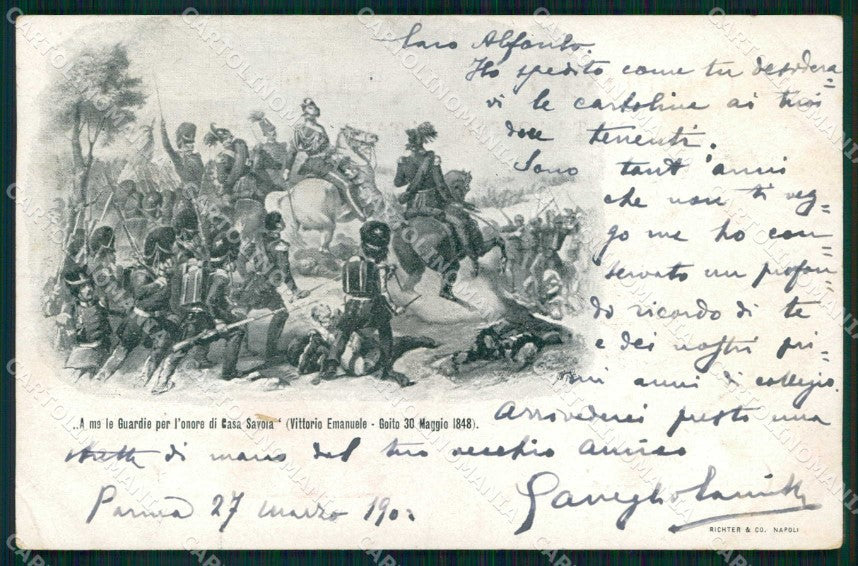 Caro Alfonso.
Ho spedito come tu desidera=
vi le cartoline ai tuoi
due tenenti.
Sono tant'anni
che non ti veg=
go ma ho con=
servato un profon=
do ricordo di te
e dei nostri pri=
mi anni di collegio.
Arrivederci presto una
stretta di mano dal tuo vecchio amico
Parma 27 marzo 190
„A me le Guardie per l'onore di Casa Savoia" (Vittorio Emanuele - Goito 30 Maggio 1848).
RICHTER & CO. NAPOLI
CARTOLINOMANIA